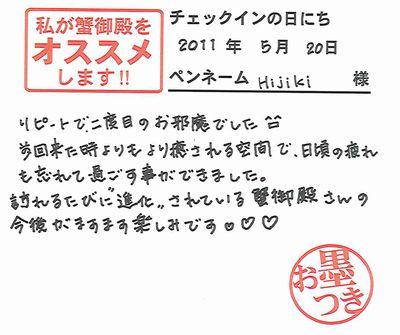 私が蟹御殿を
オススメ
します!!
チェックインの日にち
2011 年 5月 20日
ペンネーム Hijiki 様
リピートで二度目のお邪魔でした
前回来た時よりもより癒される空間で、日頃の疲れ
も忘れて過ごす事ができました。
訪れるたびに"進化"されている蟹御殿さんの
今後がますます楽しみです。♡♡
お墨つき